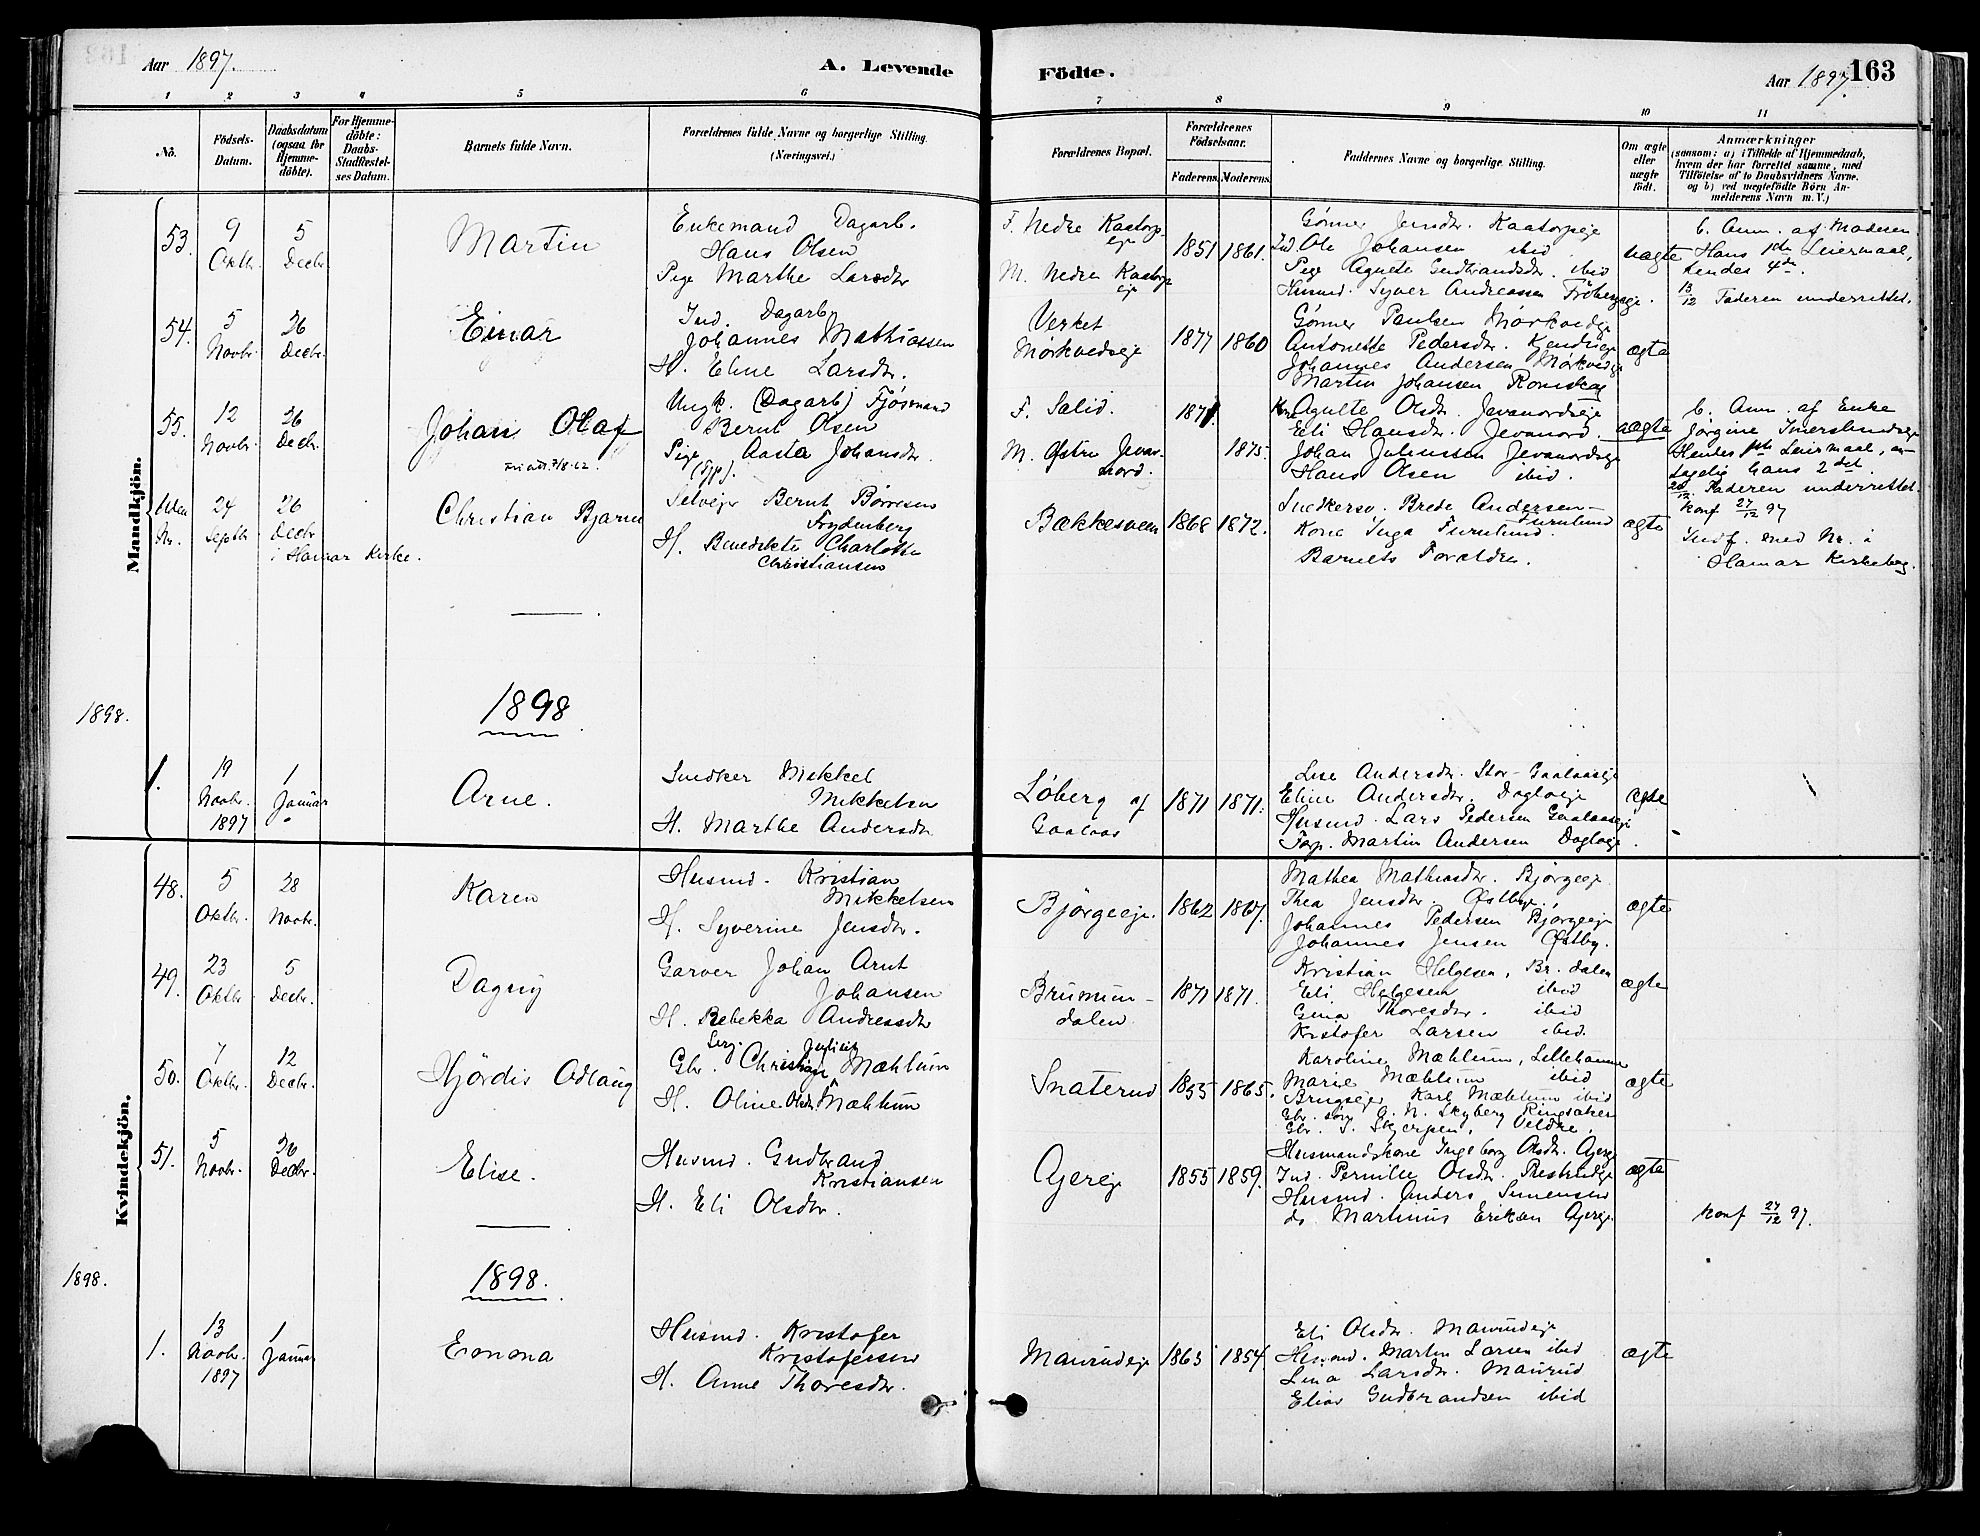 Aar 1897.
A. Levende
Födte.
Aar 1897.
163
1 2 3 4 5 6 7 8 9 10 11
No.
Födsels-
Datum.
Daabsdatum
(ogsaa for
Hjemme-
döbte).
For Hjemme-
döbte:
Daabs-
Stadfæstel-
ses Datum.
Barnets fulde Navn.
Forældrenes fulde Navne og borgerlige Stilling.
(Næringsvei.)
Forældrenes Bopæl.
Forældrenes
Födselsaar.
Faderens. Moderens.
Faddernes Navne og borgerlige Stilling.
Om ægte
eller
uægte
født.
Anmærkninger
(saasom: a) i Tilfælde af Hjemmedaab,
hvem der har forrettet samme, med
Tilföielse af to Daabsvidners Navne.
og b) ved uægtefödte Börn An-
melderens Navn m. V.)
Mandkjön.
53.
9
Oktbr.
5
Decbr.
Martin
Enkemand Dagarb.
Hans Olsen
Pige Marthe Larsdtr
F. Nedre Kaatorp
eje
M. Nedre Kaatorp
eje
1851 1861.
Gønner Jensdtr. Kaatorpeje
Ind. Ole Johansen ibid
Pige Agnete Gudbrandsdtr. ibid
Husmd. Syver Andreassen Frøbergeje.
uægte
b. Anm. af Moderen
Hans 1ste Leiermaal,
hendes 4de.
13/12 Faderen underrettet.
54.
5
Novbr.
26
Decbr.
Einar
Ind. Dagarb.
Johannes Mathiassen
H. Eline Larsdtr.
Verket
Mørkvedeje
1877 1860
Gønner Paulsen Mørkvedeje
Antonette Pedersdtr.
Johannes Andersen Mørkvedeje
Martin Johansen
ægte
55.
12
Novbr.
26
Decbr.
Johan Olaf
Ungk. (Dagarb) Fjøsmand
Bernt Olsen
Pige Aasta Johansdtr.
F. Salid.
M. Østre Jevan-
nord.
1871.
1875.
Agnete Olsdtr. Jevanordseje
Eli Hansdtr. Jevanord.
Johan Julinssen Jevanordseje
Hans Olsen ibid.
uægte
b. Anm. af Enke
Jørgine
Hendes 1ste Leiermaal, an-
tagelig hans 2det
20/12. Faderen underrettet.
Konf 27/12 97
Uden
Nr.
24
Septbr.
26
Decbr.
i Hamar Kirke.
Christian Bjarne
Selvejer Bernt Børresen
Frydenberg
H. Benedikte Charlotte
Christiansen
Bækkesveen
1868 1872.
Snedkersv. Brede Andersen
Furulund
Kone Inga Furulund.
Barnets Forældre.
ægte
Indf. med Nr. i
Hamar Kirkebog.
1898.
1898
1.
19
Novbr.
1897
1
Januar
Arne.
Snedker Mikkel
Mikkelsen
H. Marthe Andersdtr.
Løberg af
Gaalaas
1871 1871.
Lise Andersdtr. Stor-Gaalaaseje
Eline Andersdtr. Dagloeje
Husmd. Lars Pedersen Gaalaaseje
Forp. Martin Andersen Dagloeje.
ægte
Kvindekjön.
48.
5
Oktbr.
28
Novbr.
Karen
Husmd. Kristian
Mikkelsen
H. Syverine Jensdtr.
Bjørgeeje.
1862 1867.
Mathea Mathiasdtr. Bjørgeeje
Thea Jensdtr. Østbye.
Johannes Pedersen Bjørgeeje
Johannes Jensen Østby.
ægte
49.
23
Oktbr.
5
Decbr.
Dagny
Garver Johan Arnt
Johansen
H. Rebekka Andreasdtr
Brumun-
dalen
1871 1871.
Kristian Helgesen, Br.dalen
Eli Helgesen ibid
Gina Thoresdtr. ibid
Kristofer Larsen ibid.
ægte
50.
7
Oktbr.
12
Decbr.
Hjördis Odlaug
Gbr. Christian Mæhlum
H. Oline Olsdtr Mæhlum
Snaterud
1855 1865.
Karoline Mæhlum, Lillehammer
Marie Mæhlum ibid
Brugsejer Karl Mæhlum ibid
Gbr. søn G. N. Skyberg Ringsaker
Gbr. J. Skjerpen, Veldre.
ægte
51.
5
Novbr.
26
Decbr.
Elise.
Husmd. Gudbrand
Kristiansen
H. Eli Olsdtr.
Ajereje
1855 1859.
Husmandskone Ingeborg Olsdtr. Ajereje
Ind. Pernille Olsdtr.
Husmd. Anders Simensen
do. Martinus Eriksen Ajereje
ægte
Konf 27/12 97.
1898.
1898.
1.
13
Novbr.
1897
1
Januar
Emma
Husmd. Kristofer
Kristofersen
H. Anne Thoresdtr.
Maurudeje
1863 1854
Eli Olsdtr. Maurudeje
Husmd. Martin Larsen ibid
Lina Larsdtr. Maurud
Elias Gudbrandsen ibid
ægte